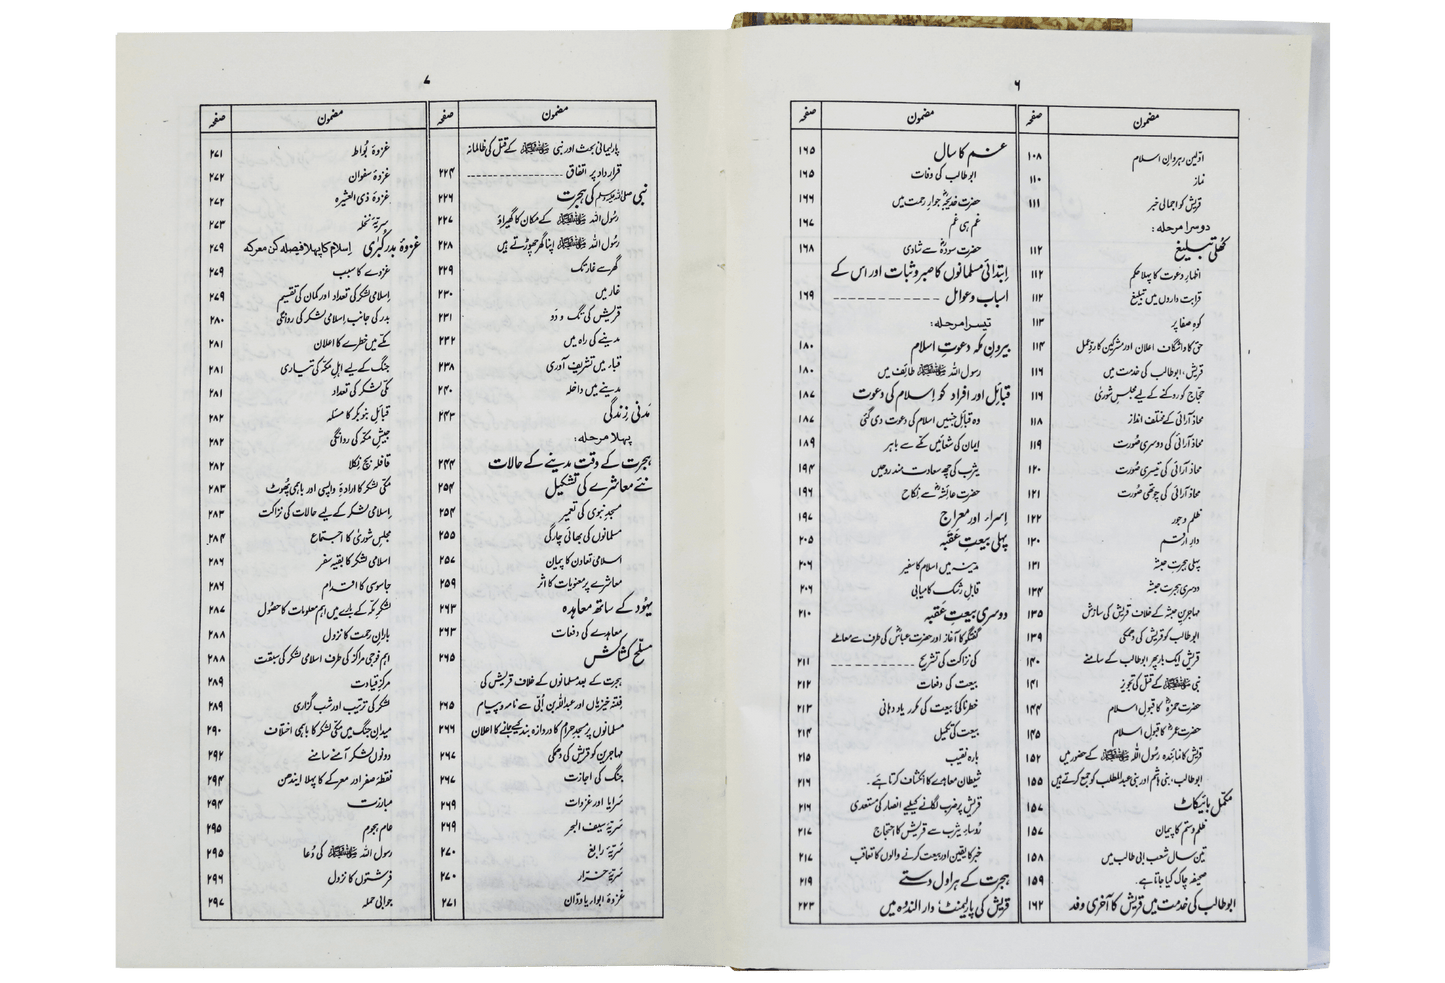 ۶
مضمون صفحہ
اوّلین رہروانِ اسلام ۱۰۸
نماز ۱۱۰
قریش کو اجمالی خبر ۱۱۱
دوسرا مرحلہ:
کھلی تبلیغ ۱۱۲
اظہارِ دعوت کا پہلا حکم ۱۱۲
قرابت داروں میں تبلیغ ۱۱۲
کوہِ صفا پر ۱۱۳
حق کا واشگاف اعلان اور مشرکین کا ردِّعمل ۱۱۴
قریش، ابوطالب کی خدمت میں ۱۱۶
حجاج کو روکنے کے لیے مجلسِ شوریٰ ۱۱۶
محاذ آرائی کے مختلف انداز ۱۱۸
محاذ آرائی کی دوسری صُورت ۱۱۹
محاذ آرائی کی تیسری صُورت ۱۲۰
محاذ آرائی کی چوتھی صُورت ۱۲۱
ظلم و جور ۱۲۲
دارِ ارقم ۱۳۰
پہلی ہجرتِ حبشہ ۱۳۱
دوسری ہجرتِ حبشہ ۱۳۴
مہاجرینِ حبشہ کے خلاف قریش کی سازش ۱۳۵
ابوطالب کو قریش کی دھمکی ۱۳۹
قریش ایک بار پھر ابوطالب کے سامنے ۱۴۰
نبی ﷺ کے قتل کی تجویز ۱۴۱
حضرت حمزہؓ کا قبولِ اسلام ۱۴۴
حضرت عمرؓ کا قبولِ اسلام ۱۴۵
قریش کا نمائندہ رسُول اللہ ﷺ کے حضور میں ۱۵۲
ابوطالب، بنی ہاشم اور بنی عبدالمطلب کو جمع کرتے ہیں ۱۵۵
مکمل بائیکاٹ ۱۵۷
ظلم و ستم کا پیمان ۱۵۷
تین سال شعبِ ابی طالب میں ۱۵۸
صحیفہ چاک کیا جاتا ہے ۔ ۱۵۹
ابوطالب کی خدمت میں قریش کا آخری وفد ۱۶۲
مضمون صفحہ
غم کا سال ۱۶۵
ابوطالب کی وفات ۱۶۵
حضرت خدیجہؓ جوارِ رحمت میں ۱۶۶
غم ہی غم ۱۶۷
حضرت سودہؓ سے شادی ۱۶۸
ابتدائی مسلمانوں کا صبر و ثبات اور اس کے
اسباب و عوامل ۱۶۹
تیسرا مرحلہ:
بیرونِ مکہ دعوتِ اسلام ۱۸۰
رسول اللہ ﷺ طائف میں ۱۸۰
قبائل اور افراد کو اسلام کی دعوت ۱۸۷
وہ قبائل جنہیں اسلام کی دعوت دی گئی ۱۸۷
ایمان کی شعائیں مکے سے باہر ۱۸۹
یثرب کی چھ سعادت مند روحیں ۱۹۴
حضرت عائشہؓ سے نکاح ۱۹۶
اِسراء اور معراج ۱۹۷
پہلی بیعتِ عَقَبہ ۲۰۵
مدینہ میں اسلام کا سفیر ۲۰۶
قابلِ رشک کامیابی ۲۰۶
دوسری بیعتِ عَقَبہ ۲۱۰
گفتگو کا آغاز اور حضرت عباسؓ کی طرف سے معاملے
کی نزاکت کی تشریح ۲۱۱
بیعت کی دفعات ۲۱۲
خطرناکیِ بیعت کی مکرر یاد دہانی ۲۱۳
بیعت کی تکمیل ۲۱۴
بارہ نقیب ۲۱۵
شیطان معاہدے کا انکشاف کرتا ہے ۔ ۲۱۶
قریش پر ضرب لگانے کیلیے انصار کی مستعدی ۲۱۶
رُوساءِ یثرب سے قریش کا احتجاج ۲۱۷
خبر کا یقین اور بیعت کرنے والوں کا تعاقب ۲۱۷
ہجرت کے ہراول دستے ۲۱۹
قریش کی پارلیمنٹ دار الندوہ میں ۲۲۳
۷
مضمون صفحہ
پارلیمانی بحث اور نبی ﷺ کے قتل کی ظالمانہ
قرارداد پر اتفاق ۲۲۴
نبی ﷺ کی ہجرت ۲۲۶
رسُول اللہ ﷺ کے مکان کا گھیراؤ ۲۲۷
رسُول اللہ ﷺ اپنا گھر چھوڑتے ہیں ۲۲۸
گھر سے غار تک ۲۲۹
غار میں ۲۳۰
قریش کی تگ و دَو ۲۳۱
مدینے کی راہ میں ۲۳۲
قباء میں تشریف آوری ۲۳۸
مدینے میں داخلہ ۲۴۰
مَدنی زندگی ۲۴۳
پہلا مرحلہ:
ہجرت کے وقت مدینے کے حالات ۲۴۴
نئے معاشرے کی تشکیل ۲۵۴
مسجدِ نبوی کی تعمیر ۲۵۴
مسلمانوں کی بھائی چارگی ۲۵۵
اسلامی تعاون کا پیمان ۲۵۷
معاشرے پر معنویات کا اثر ۲۵۹
یہُود کے ساتھ معاہدہ ۲۶۳
معاہدے کی دفعات ۲۶۳
مسلّح کشاکش ۲۶۵
ہجرت کے بعد مسلمانوں کے خلاف قریش کی
فتنہ خیزیاں اور عبداللہ بن اُبَیّ سے نامہ و پیام ۲۶۵
مسلمانوں پر مسجدِ حرام کا دروازہ بند کیے جانے کا اعلان ۲۶۶
مہاجرین کو قریش کی دھمکی ۲۶۷
جنگ کی اجازت ۲۶۷
سَرایا اور غزوات ۲۶۹
سَرِیّۂ سیف البحر ۲۶۹
سَرِیّۂ رابغ ۲۷۰
سَرِیّۂ خرار ۲۷۰
غزوۂ ابواء یا ودّان ۲۷۱
مضمون صفحہ
غزوۂ بُواط ۲۷۱
غزوۂ سفوان ۲۷۲
غزوۂ ذی العشیرہ ۲۷۲
سریّۂ نخلہ ۲۷۳
غزوۂ بدر کُبریٰ اسلام کا پہلا فیصلہ کن معرکہ ۲۷۹
غزوے کا سبب ۲۷۹
اسلامی لشکر کی تعداد اور کمان کی تقسیم ۲۷۹
بدر کی جانب اسلامی لشکر کی روانگی ۲۸۰
مکے میں خطرے کا اعلان ۲۸۱
جنگ کے لیے اہلِ مکہ کی تیاری ۲۸۱
مکی لشکر کی تعداد ۲۸۱
قبائل بنو بکر کا مسئلہ ۲۸۲
جیشِ مکہ کی روانگی ۲۸۲
قافلہ بچ نکلا ۲۸۲
مکی لشکر کا ارادۂ واپسی اور باہمی پھُوٹ ۲۸۳
اسلامی لشکر کے لیے حالات کی نزاکت ۲۸۳
مجلسِ شوریٰ کا اجتماع ۲۸۴
اسلامی لشکر کا بقیہ سفر ۲۸۶
جاسوسی کا اقدام ۲۸۶
لشکرِ مکہ کے بارے میں اہم معلومات کا حصُول ۲۸۷
بارانِ رحمت کا نزول ۲۸۸
اہم فوجی مراکز کی طرف اسلامی لشکر کی سبقت ۲۸۸
مرکزِ قیادت ۲۸۹
لشکر کی ترتیب اور شب گزاری ۲۸۹
میدانِ جنگ میں مکی لشکر کا باہمی اختلاف ۲۹۰
دونوں لشکر آمنے سامنے ۲۹۲
نقطۂ صفر اور معرکے کا پہلا ایندھن ۲۹۴
مبارزت ۲۹۴
عام ہجوم ۲۹۵
رسول اللہ ﷺ کی دُعا ۲۹۵
فرشتوں کا نزول ۲۹۶
جوابی حملہ ۲۹۷